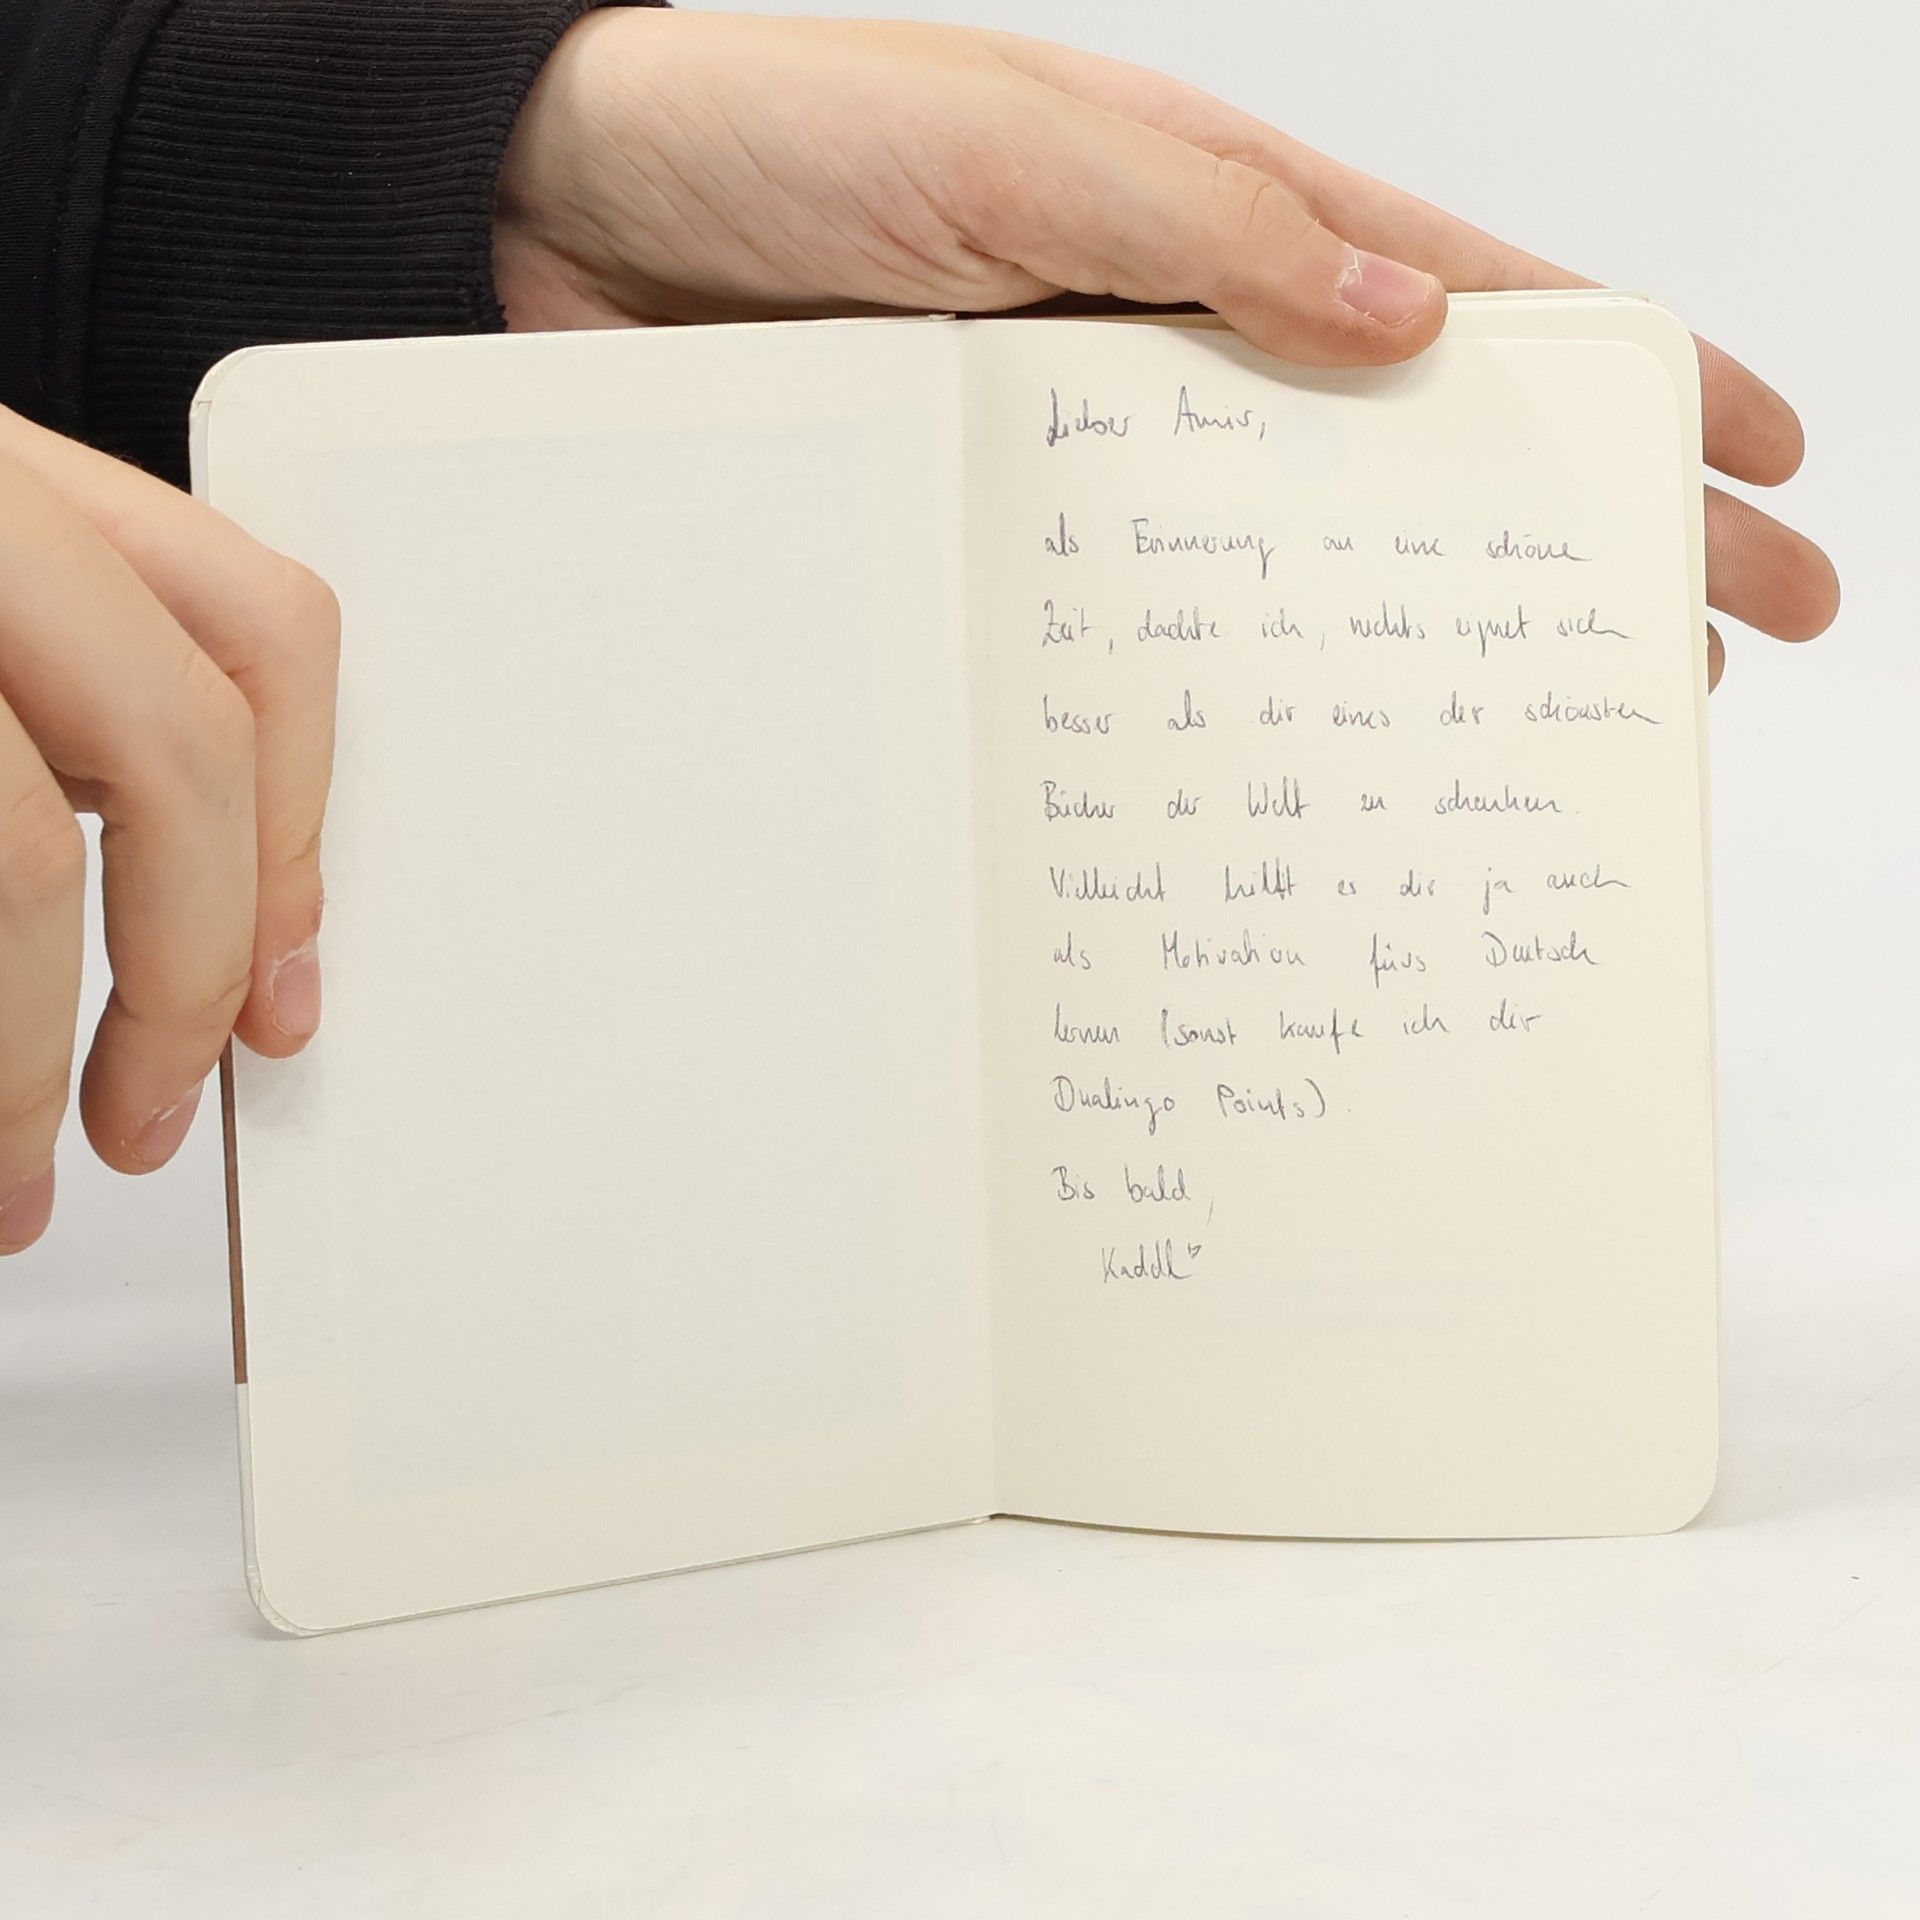 Lieber Amir,
als Erinnerung an eine schöne
Zeit, dachte ich, nichts eignet sich
besser als dir eines der schönsten
Bücher der Welt zu schenken.
Vielleicht hilft es dir ja auch
als Motivation fürs Deutsch
lernen (sonst kaufe ich dir
Dualingo Points).
Bis bald,
Kaddl